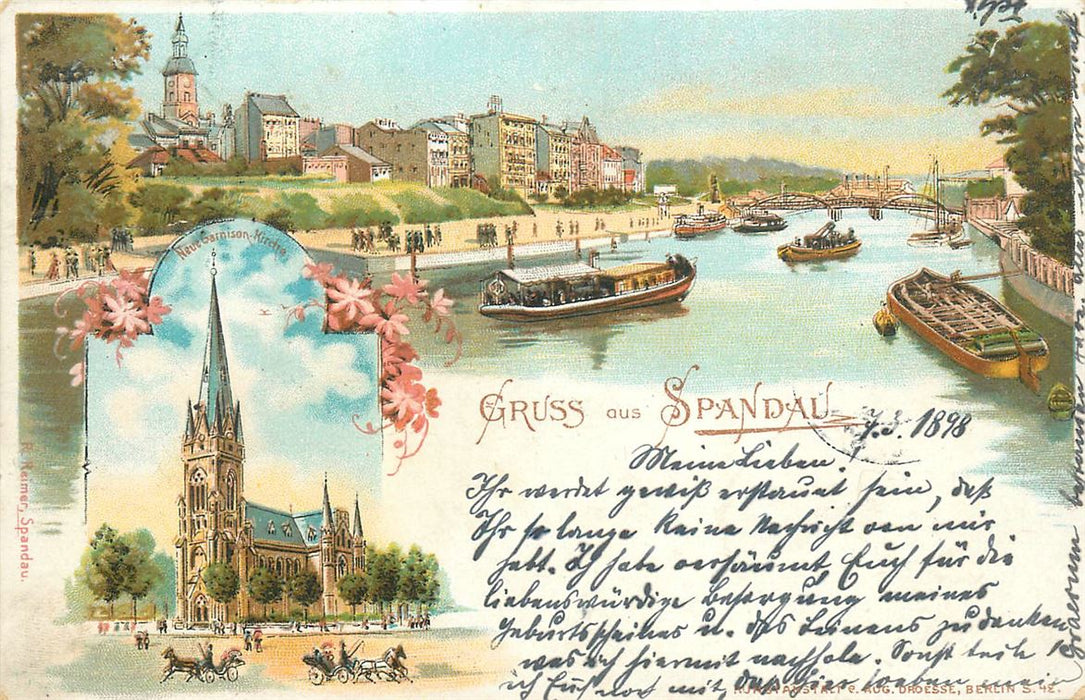 Neue Garnison-Kirche
R. Kumer, Spandau.
GRUSS aus SPANDAU
7.3. 1898
Meine Lieben!
Ihr werdet gewiß erstaunt sein, daß
Ihr so lange keine Nachricht von mir
habt. Ich habe versäumt Euch für die
liebenswürdige Besorgung meines
Geburtsscheines u. des Leinens zu danken
was ich hiermit nachhole. Sonst teile
ich Euch noch mit, daß hier
KUNSTANSTALT C. AUG. DROESSE, BERLIN S.